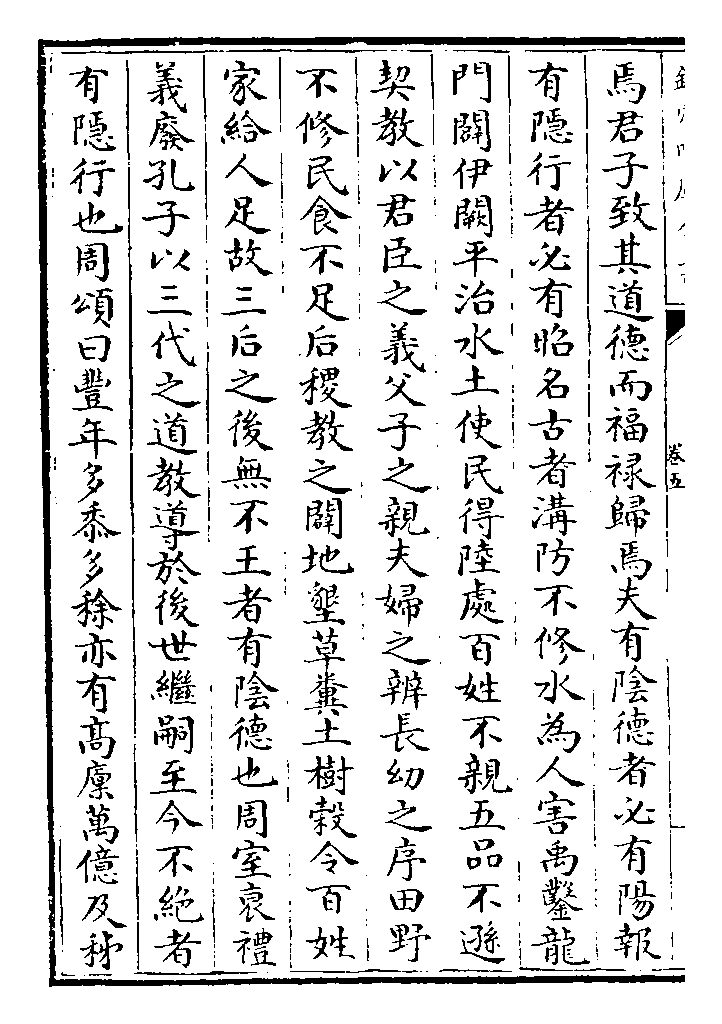 卷五
焉君子致其道德而福禄歸焉夫有陰德者必有陽報
有隱行者必有昭名古者溝防不修水為人害禹鑿龍
門闢伊闕平治水土使民得陸處百姓不親五品不遜
契教以君臣之義父子之親夫婦之辨長幼之序田野
不修民食不足后稷教之闢地墾草糞土樹榖令百姓
家給人足故三后之後無不王者有陰德也周室衰禮
義廢孔子以三代之道教導於後世繼嗣至今不絶者
有隱行也周頌曰豐年多黍多稌亦有髙廩萬億及秭